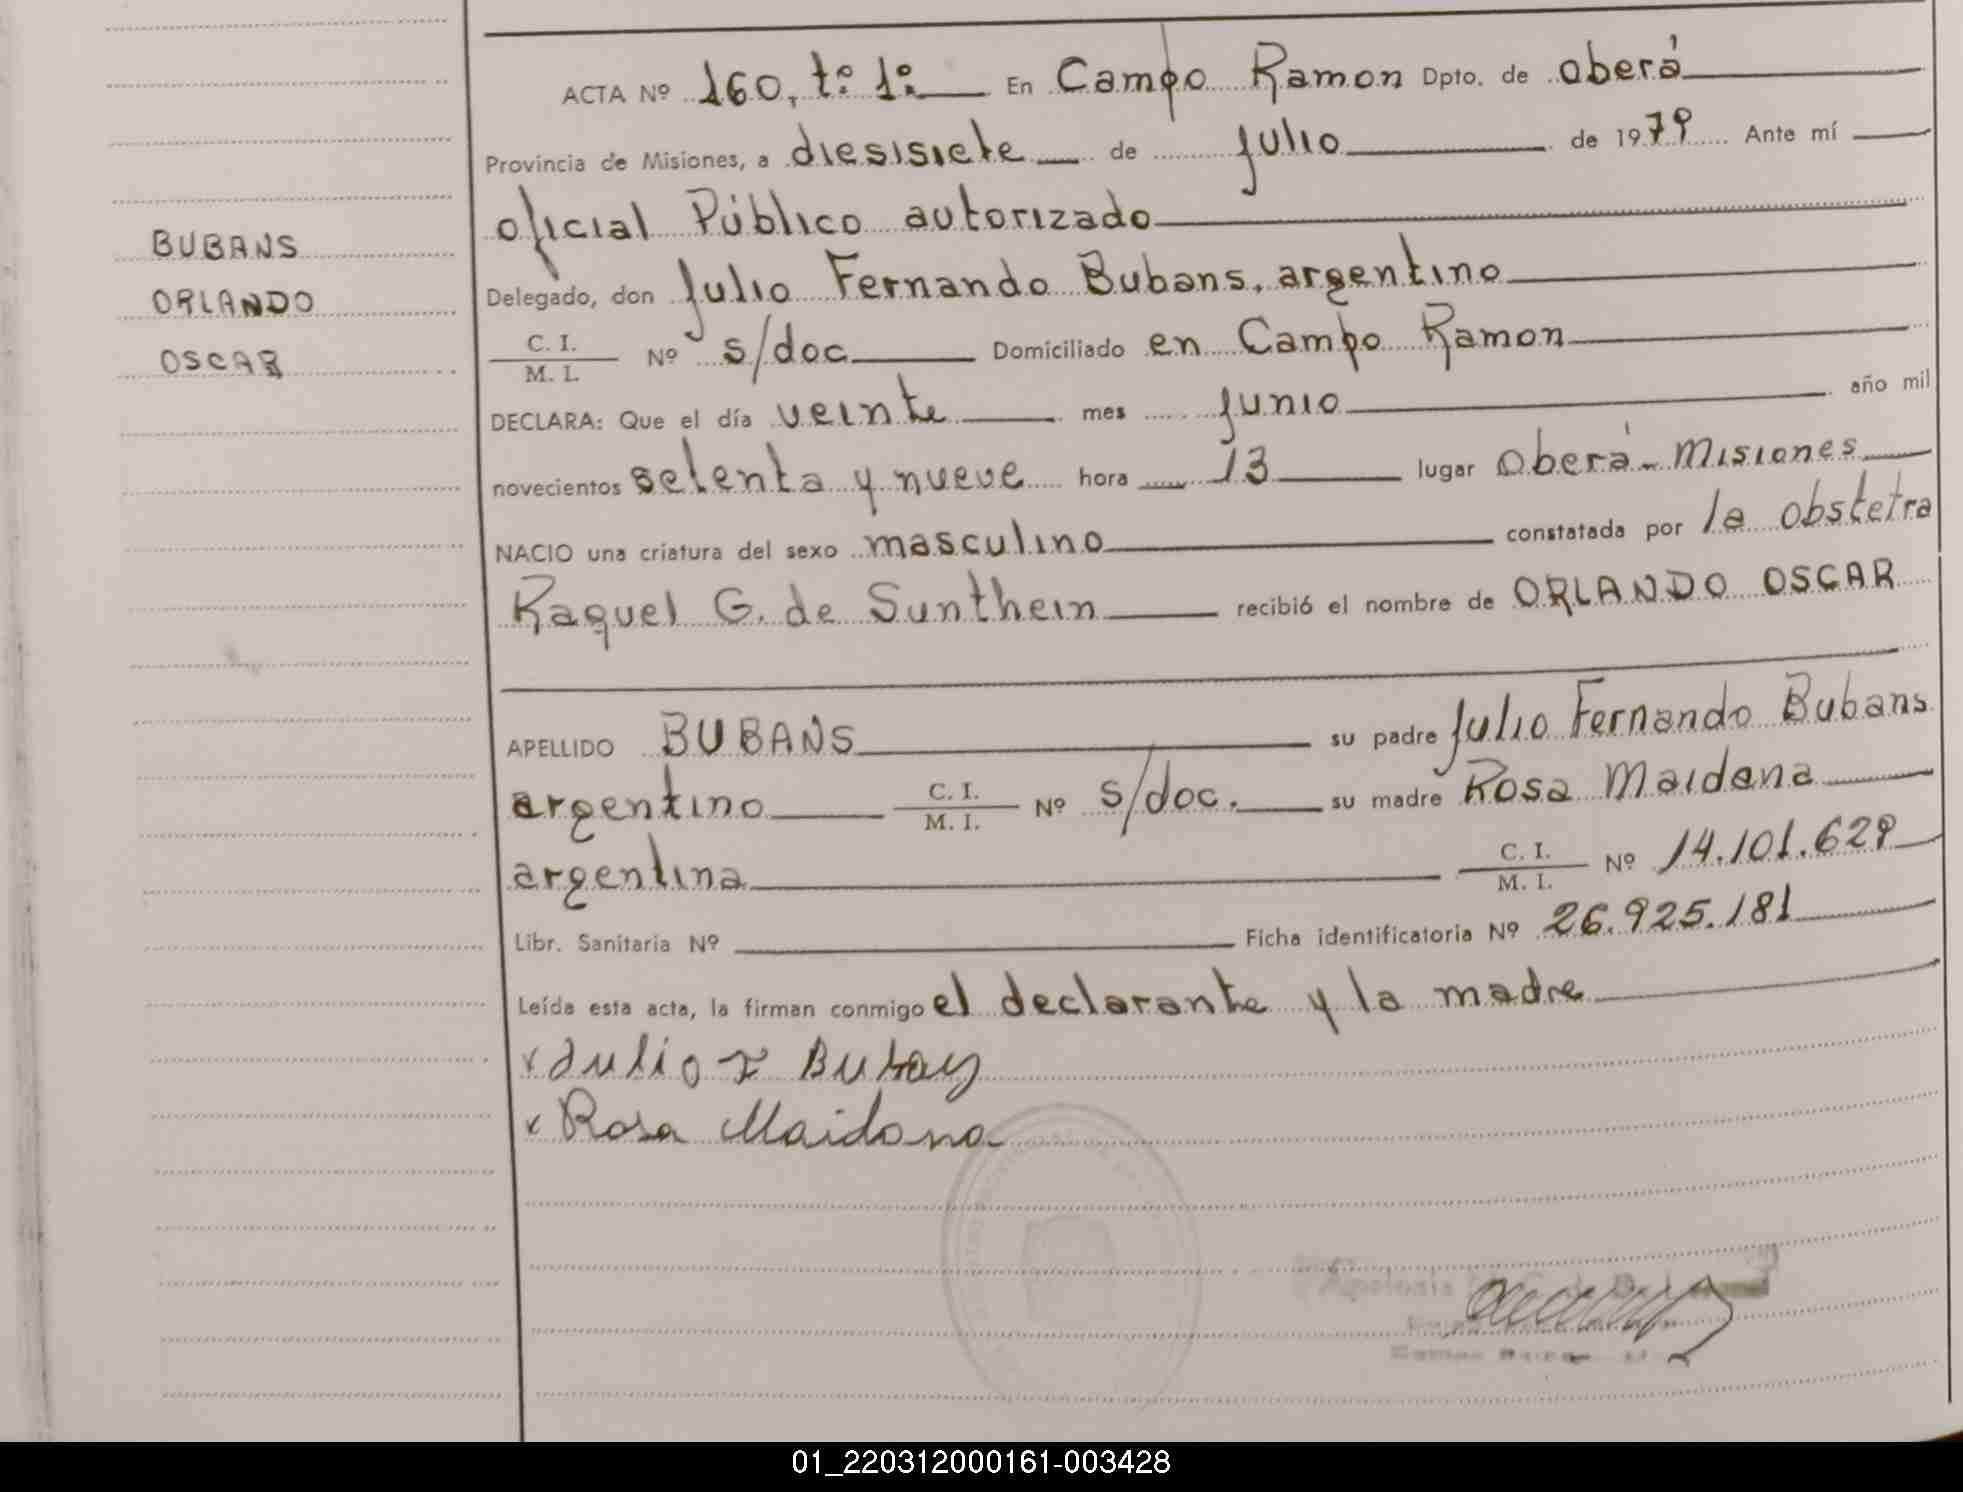 ACTA Nº 160, tº 1º En Campo Ramon Dpto. de oberá
Provincia de Misiones, a diesisiete de julio de 1979 Ante mí
oficial Público autorizado
BUBANS
ORLANDO
OSCAR
Delegado, don Julio Fernando Bubans, argentino
C. I.
M. I. Nº s/doc Domiciliado en Campo Ramon
DECLARA: Que el día veinte mes junio año mil
novecientos setenta y nueve hora 13 lugar oberá - Misiones
NACIO una criatura del sexo masculino constatada por la obstetra
Raquel G. de Sunthein recibió el nombre de ORLANDO OSCAR
APELLIDO BUBANS su padre Julio Fernando Bubans
argentino C. I. M. I. Nº s/doc. su madre Rosa Maidana
argentina C. I. M. I. Nº 14.101.629
Libr. Sanitaria Nº Ficha identificatoria Nº 26.925.181
Leída esta acta, la firman conmigo el declarante y la madre
x Julio F
x Rosa Maidana
Apolonia
01_220312000161-003428